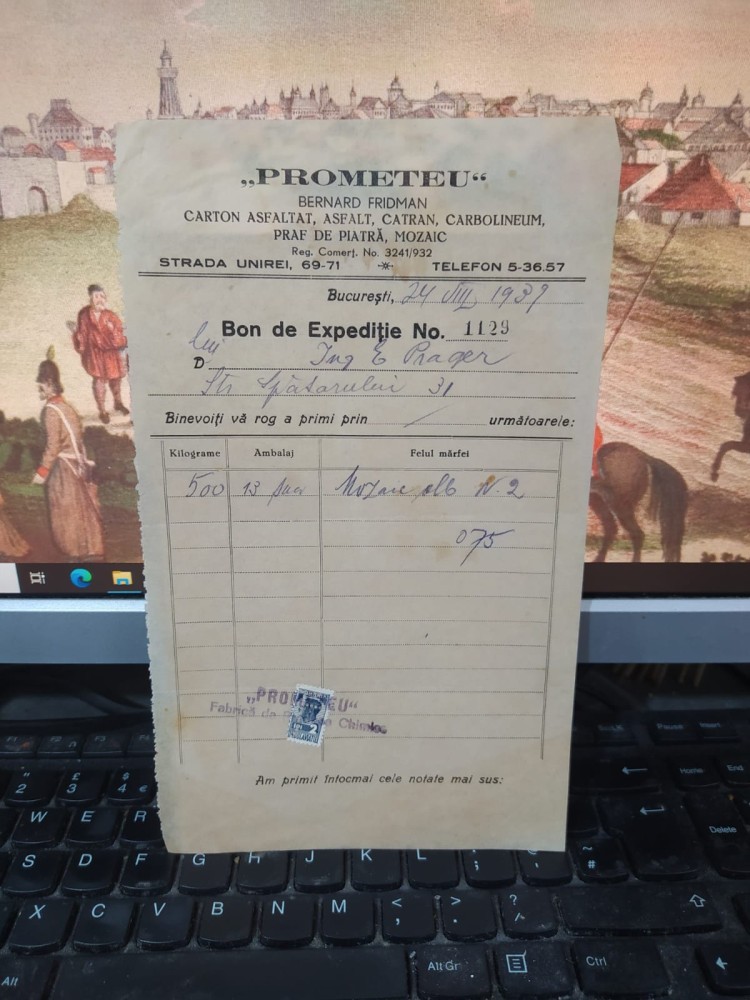 „PROMETEU“
BERNARD FRIDMAN
CARTON ASFALTAT, ASFALT, CATRAN, CARBOLINEUM,
PRAF DE PIATRĂ, MOZAIC
Reg. Comerț. No. 3241/932
STRADA UNIREI, 69-71 TELEFON 5-36.57
București, 24 VIII 1937
Bon de Expediție No. 1129
lui
D Ing E Prager
Str Spătarului 31
Binevoiți vă rog a primi prin / următoarele:
Kilograme Ambalaj Felul mărfei
500 13 saci Mozaic alb N. 2
075
„PROMETEU“
Fabrică de Chimice
Am primit întocmai cele notate mai sus:
" £ $
2 3 4 €
W E R
S D F G H J K L : ; ~ #
X C V B N M < , > . ? /
Alt Alt Gr Ctrl
Pause Insert
Home End
Delete